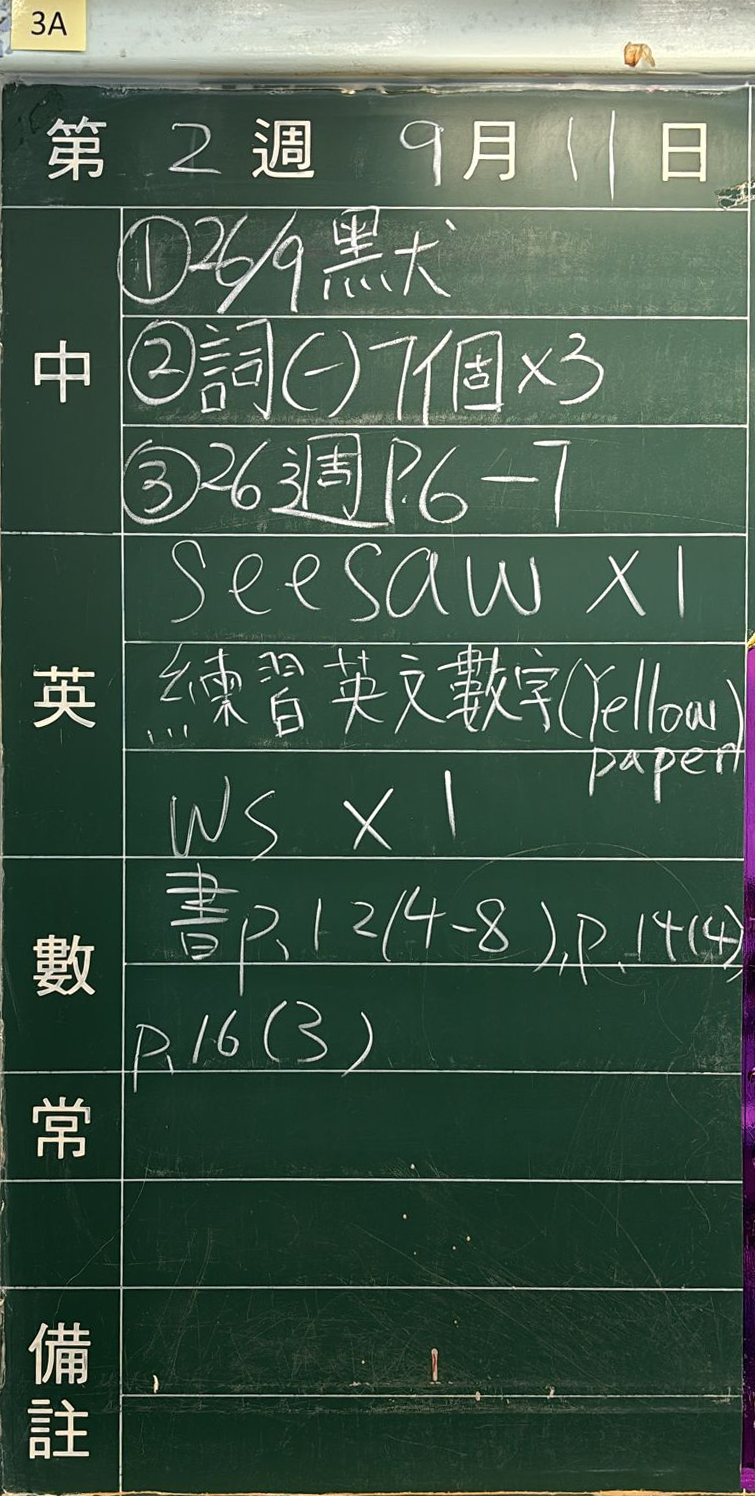 3A
第 2 週 9 月 11 日
中
①26/9 默犬
②詞(一)7個x3
③26週P.6-7
英
Seesaw x 1
練習英文數字(Yellow paper)
WS x 1
數
書p.12(4-8), p.14(4)
p.16(3)
常
備註